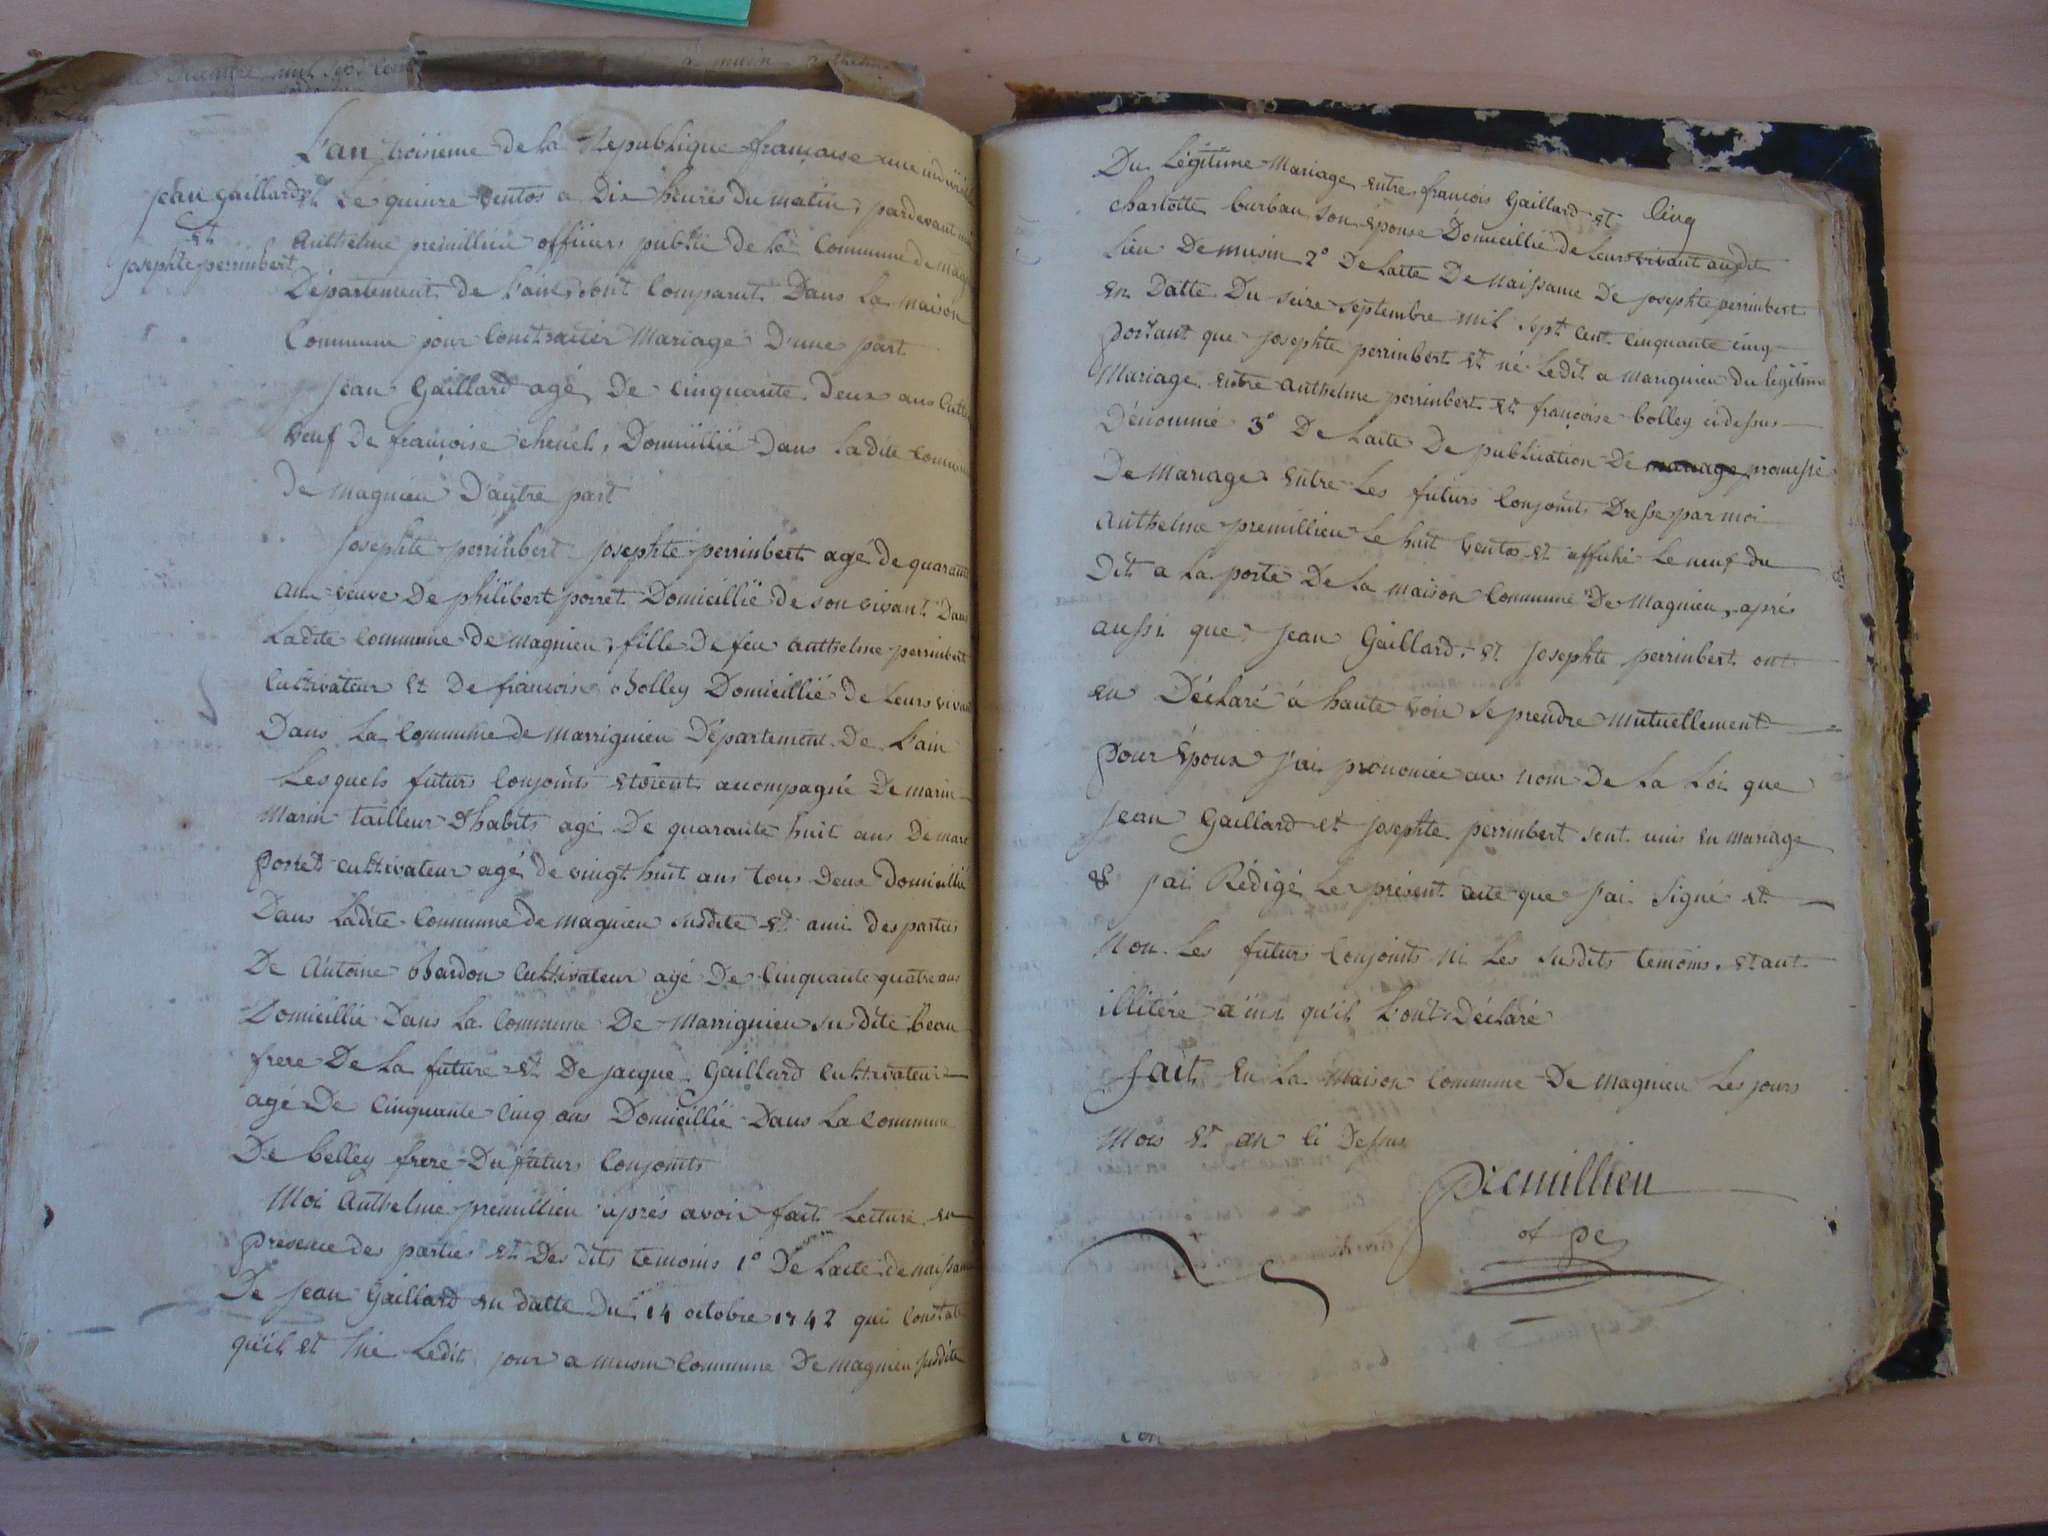 L'an troisieme de la Republique francaise une indivisible
Jean gaillard
Et
josephte perrinbert
Et Le quinze ventos a Dix heures du matin, pardevant moi
Anthelme premillieu officiers public de la Commune de magnieu
Département de L'ain, sont Comparut Dans La maison
Commune pour Contracter Mariage D'une part
Jean Gaillard agé De Cinquante Deux ans
veuf de francoise chenel, Domicillié Dans Ladite Commune
de magnieu D'autre part
Josephte perrinbert josephte perrinbert agé de quarante
ans veuve De philibert porret Domicillié de son vivant Dans
Ladite Commune de magnieu, fille De feu Anthelme perrinbert
Cultivateur Et De francoise Bolley Domicillié de Leurs vivant
Dans La Commune de Marrignieu Département De L'ain
Lesquels futurs Conjoints Etoient accompagné De marin
Marin tailleur D'habits agé De quarante huit ans De marc
Porret Cultivateur agé de vingt huit ans tous Deux Domicillié
Dans Ladite Commune de magnieu susdite Et ami des parties
De Antoine Bardon Cultivateur agé De Cinquante quatre ans
Domicillié Dans La Commune De Marrignieu susdite beau
frere De La future Et De jacque Gaillard Cultivateur
agé De Cinquante Cinq ans Domicillié Dans La Commune
De belley frere Du futurs Conjoints
Moi Anthelme premillieu aprés avoir fait Lecture en
presence des parties Et Des dits temoins 1° De Lacte de naissance
De Jean Gaillard en datte Du 14 octobre 1742 qui Constate
qu'il Et né Ledit jour a musin Commune De magnieu susdite
Cinq
Du Légitime Mariage entre francois Gaillard Et
Charlotte burban son épouse Domicillié de Leurs vivant audit
Lieu De musin 2° De Lacte De Naissance De josephte perrinbert
en Datte Du seize septembre mil sept Cent Cinquante cinq
portant que josephte perrinbert Et né Ledit a Marignieu du légitime
Mariage entre Anthelme perrinbert Et francoise bolley cidessus
Dénommé 3° De Lacte De publication De mariage promesse
De Mariage entre Les futurs Conjoints Dresse par moi
Anthelme premillieu Le huit Ventos Et affiché Le neuf du
Dit a La porte De La maison Commune De Magnieu, aprés
aussi que Jean Gaillard, Et Josephte perrinbert ont
eu Déclaré á haute voix se prendre Mutuellement
pour Epoux J'ai prononcée au nom De La Loi que
Jean Gaillard Et josephte perrinbert sont unis en mariage
& J'ai Rédigé Le présent acte que J'ai Signé Et
Non Les futurs Conjoints ni Les susdits temoins, Etant
illitére ainsi qu'il L'ont Déclaré
fait en La Maison Commune De Magnieu Les jours
Mois Et an Ci Dessus
Premillieu
of pe